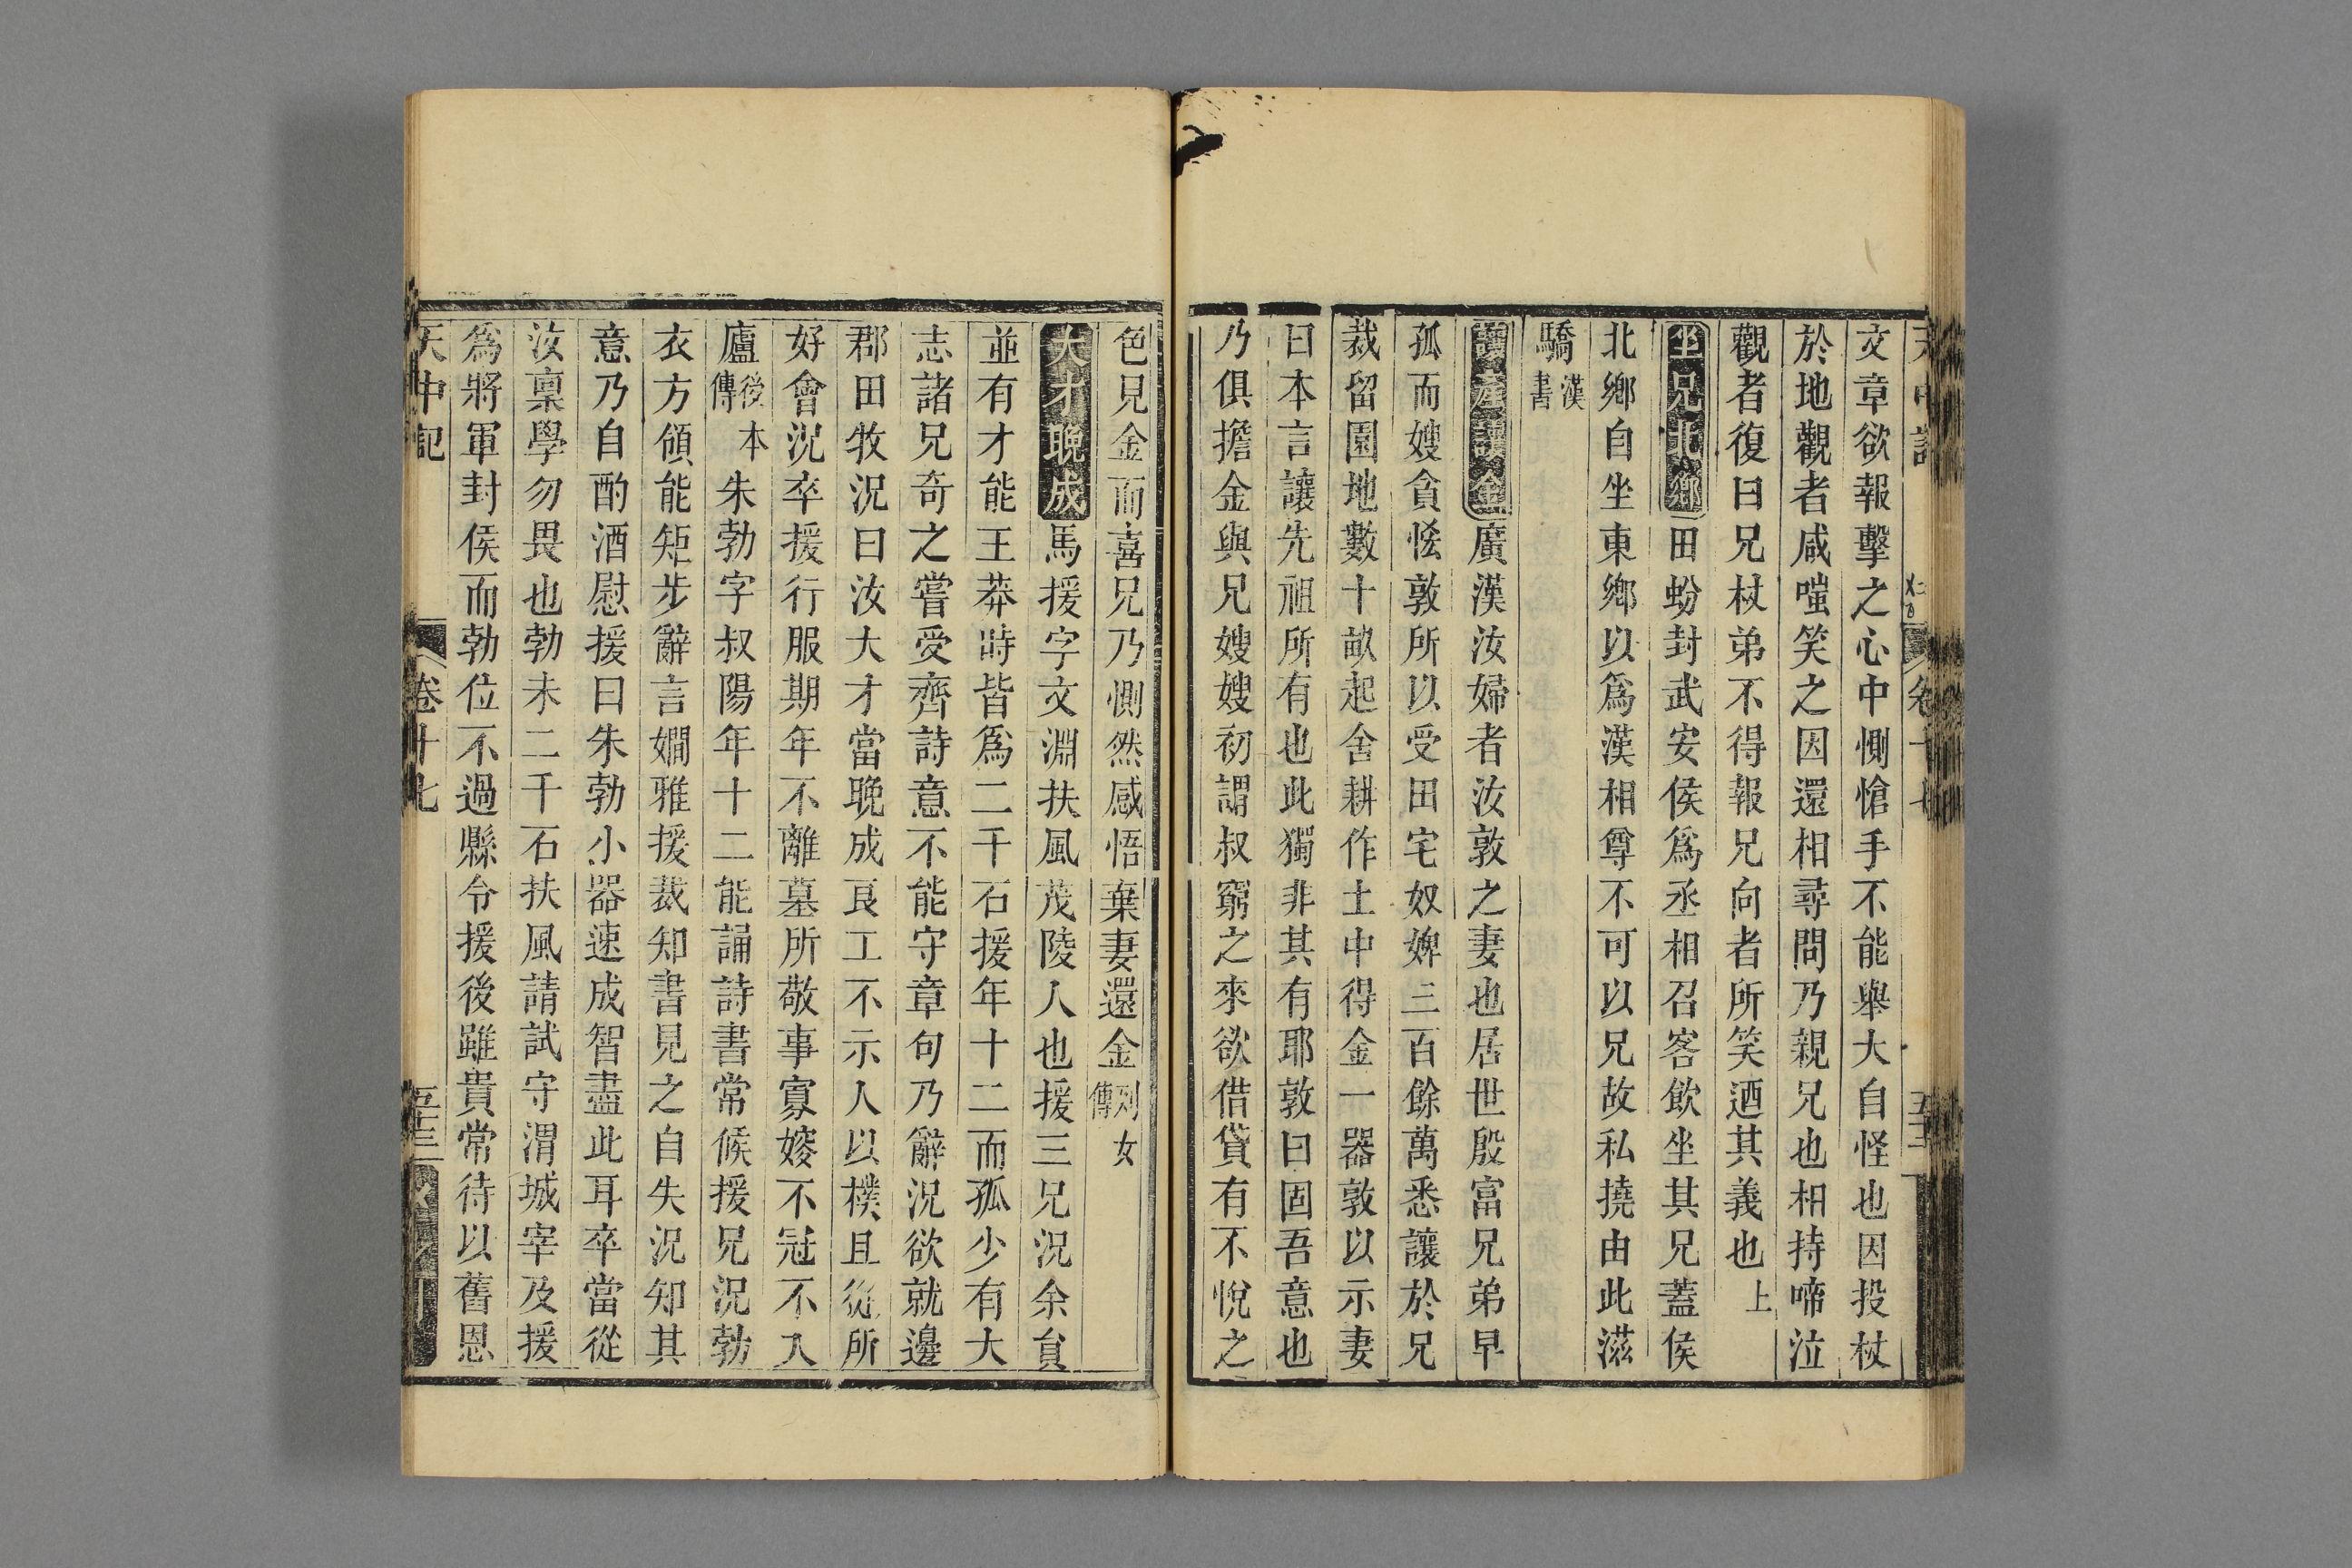 文章欲報擊之心中惻愴手不能舉大自怪也因投杖
於地觀者咸嗤笑之因還相尋問乃親兄也相持啼泣
觀者復曰兄杖弟不得報兄向者所笑迺其義也上
坐兄北鄉田蚡封武安侯爲丞相召客飲坐其兄蓋侯
北鄉自坐東鄉以爲漢相尊不可以兄故私撓由此滋
驕漢書
讓產讓金廣漢汝婦者汝敦之妻也居世殷富兄弟早
孤而嫂貪恡敦所以受田宅奴婢三百餘萬悉讓於兄
裁留園地數十畝起舍耕作土中得金一器敦以示妻
曰本言讓先祖所有也此獨非其有耶敦曰固吾意也
乃俱擔金與兄嫂嫂初謂叔窮之來欲借貸有不悅之
色見金而喜兄乃惻然感悟棄妻還金列女傳
大才晚成馬援字文淵扶風茂陵人也援三兄況余員
並有才能王莽時皆爲二千石援年十二而孤少有大
志諸兄奇之嘗受齊詩意不能守章句乃辭況欲就邊
郡田牧況曰汝大才當晚成良工不示人以樸且從所
好會況卒援行服期年不離墓所敬事寡嫂不冠不入
廬後本傳朱勃字叔陽年十二能誦詩書常候援兄況勃
衣方領能矩步辭言嫺雅援裁知書見之自失況知其
意乃自酌酒慰援曰朱勃小器速成智盡此耳卒當從
汝稟學勿畏也勃未二千石扶風請試守渭城宰及援
爲將軍封侯而勃位不過縣令援後雖貴常待以舊恩
天中記 卷十七 五十三